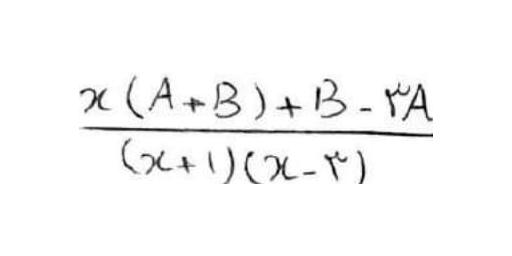 x(A+B)+B-۳A
(x+1)(x-۳)